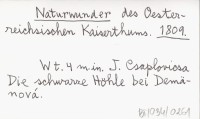 Naturwunder des Oester-
reichsischen Kaiserthums. 1809.
Wt. 4 m.in. J. Csaploviosa
Die schwarze Höhle bei Demá-
nová.